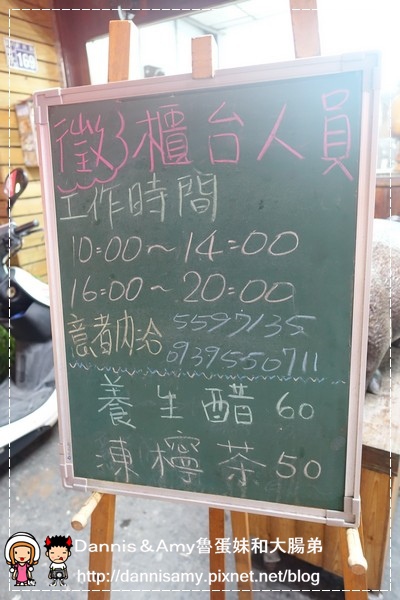 169
徵 櫃台人員
工作時間
10:00～14:00
16:00～20:00
意者內洽 5597135
0939550711
養生醋 60
凍檸茶 50
Dannis＆Amy魯蛋妹和大腸弟
http://dannisamy.pixnet.net/blog